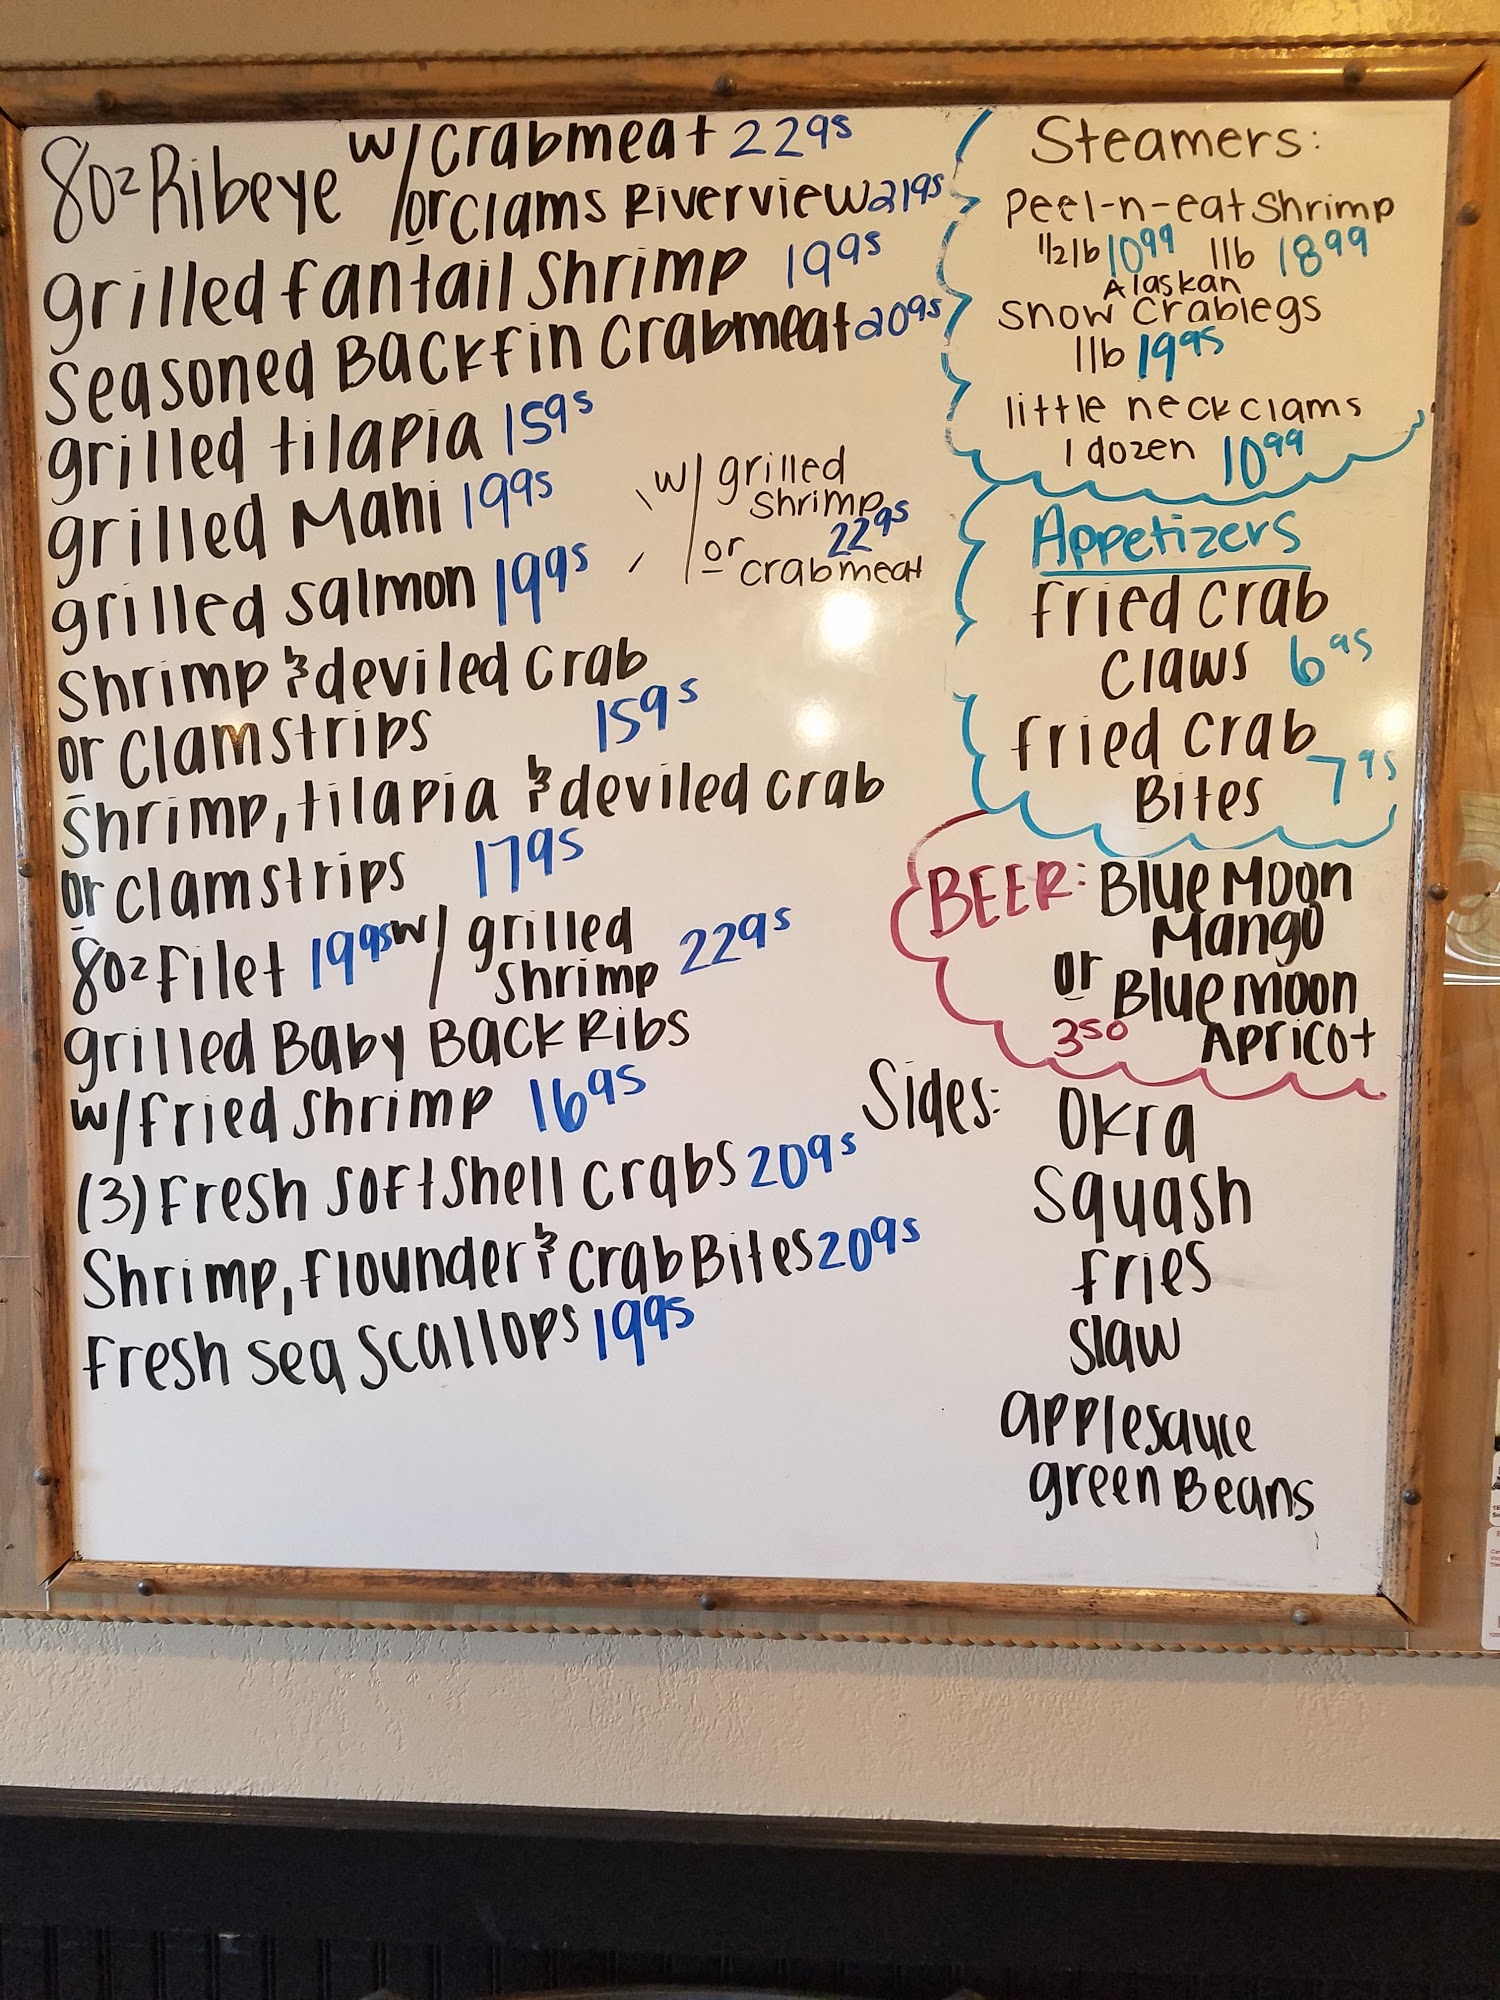 8oz Ribeye w/ crabmeat 22 95
or clams Riverview 21 95
grilled fantail shrimp 19 95
seasoned Backfin crabmeat 20 95
grilled tilapia 15 95
grilled Mahi 19 95
grilled salmon 19 95
w/ grilled
shrimp
22 95
or crabmeat
shrimp & deviled crab
or clamstrips 15 95
shrimp, tilapia & deviled crab
or clamstrips 17 95
8oz filet 19 95 w/ grilled
shrimp 22 95
grilled Baby Back Ribs
w/ fried shrimp 16 95
(3) Fresh softshell crabs 20 95
Shrimp, flounder & crab Bites 20 95
Fresh sea scallops 19 95
Steamers:
peel-n-eat shrimp
1/2 lb 10 99 1lb 18 99
Alaskan
snow crablegs
1lb 19 95
little neck clams
1 dozen 10 99
Appetizers
fried crab
claws 6 95
fried crab
Bites 7 95
BEER: Blue Moon
Mango
or Blue moon
3 50 Apricot
Sides: Okra
Squash
fries
slaw
applesauce
green Beans